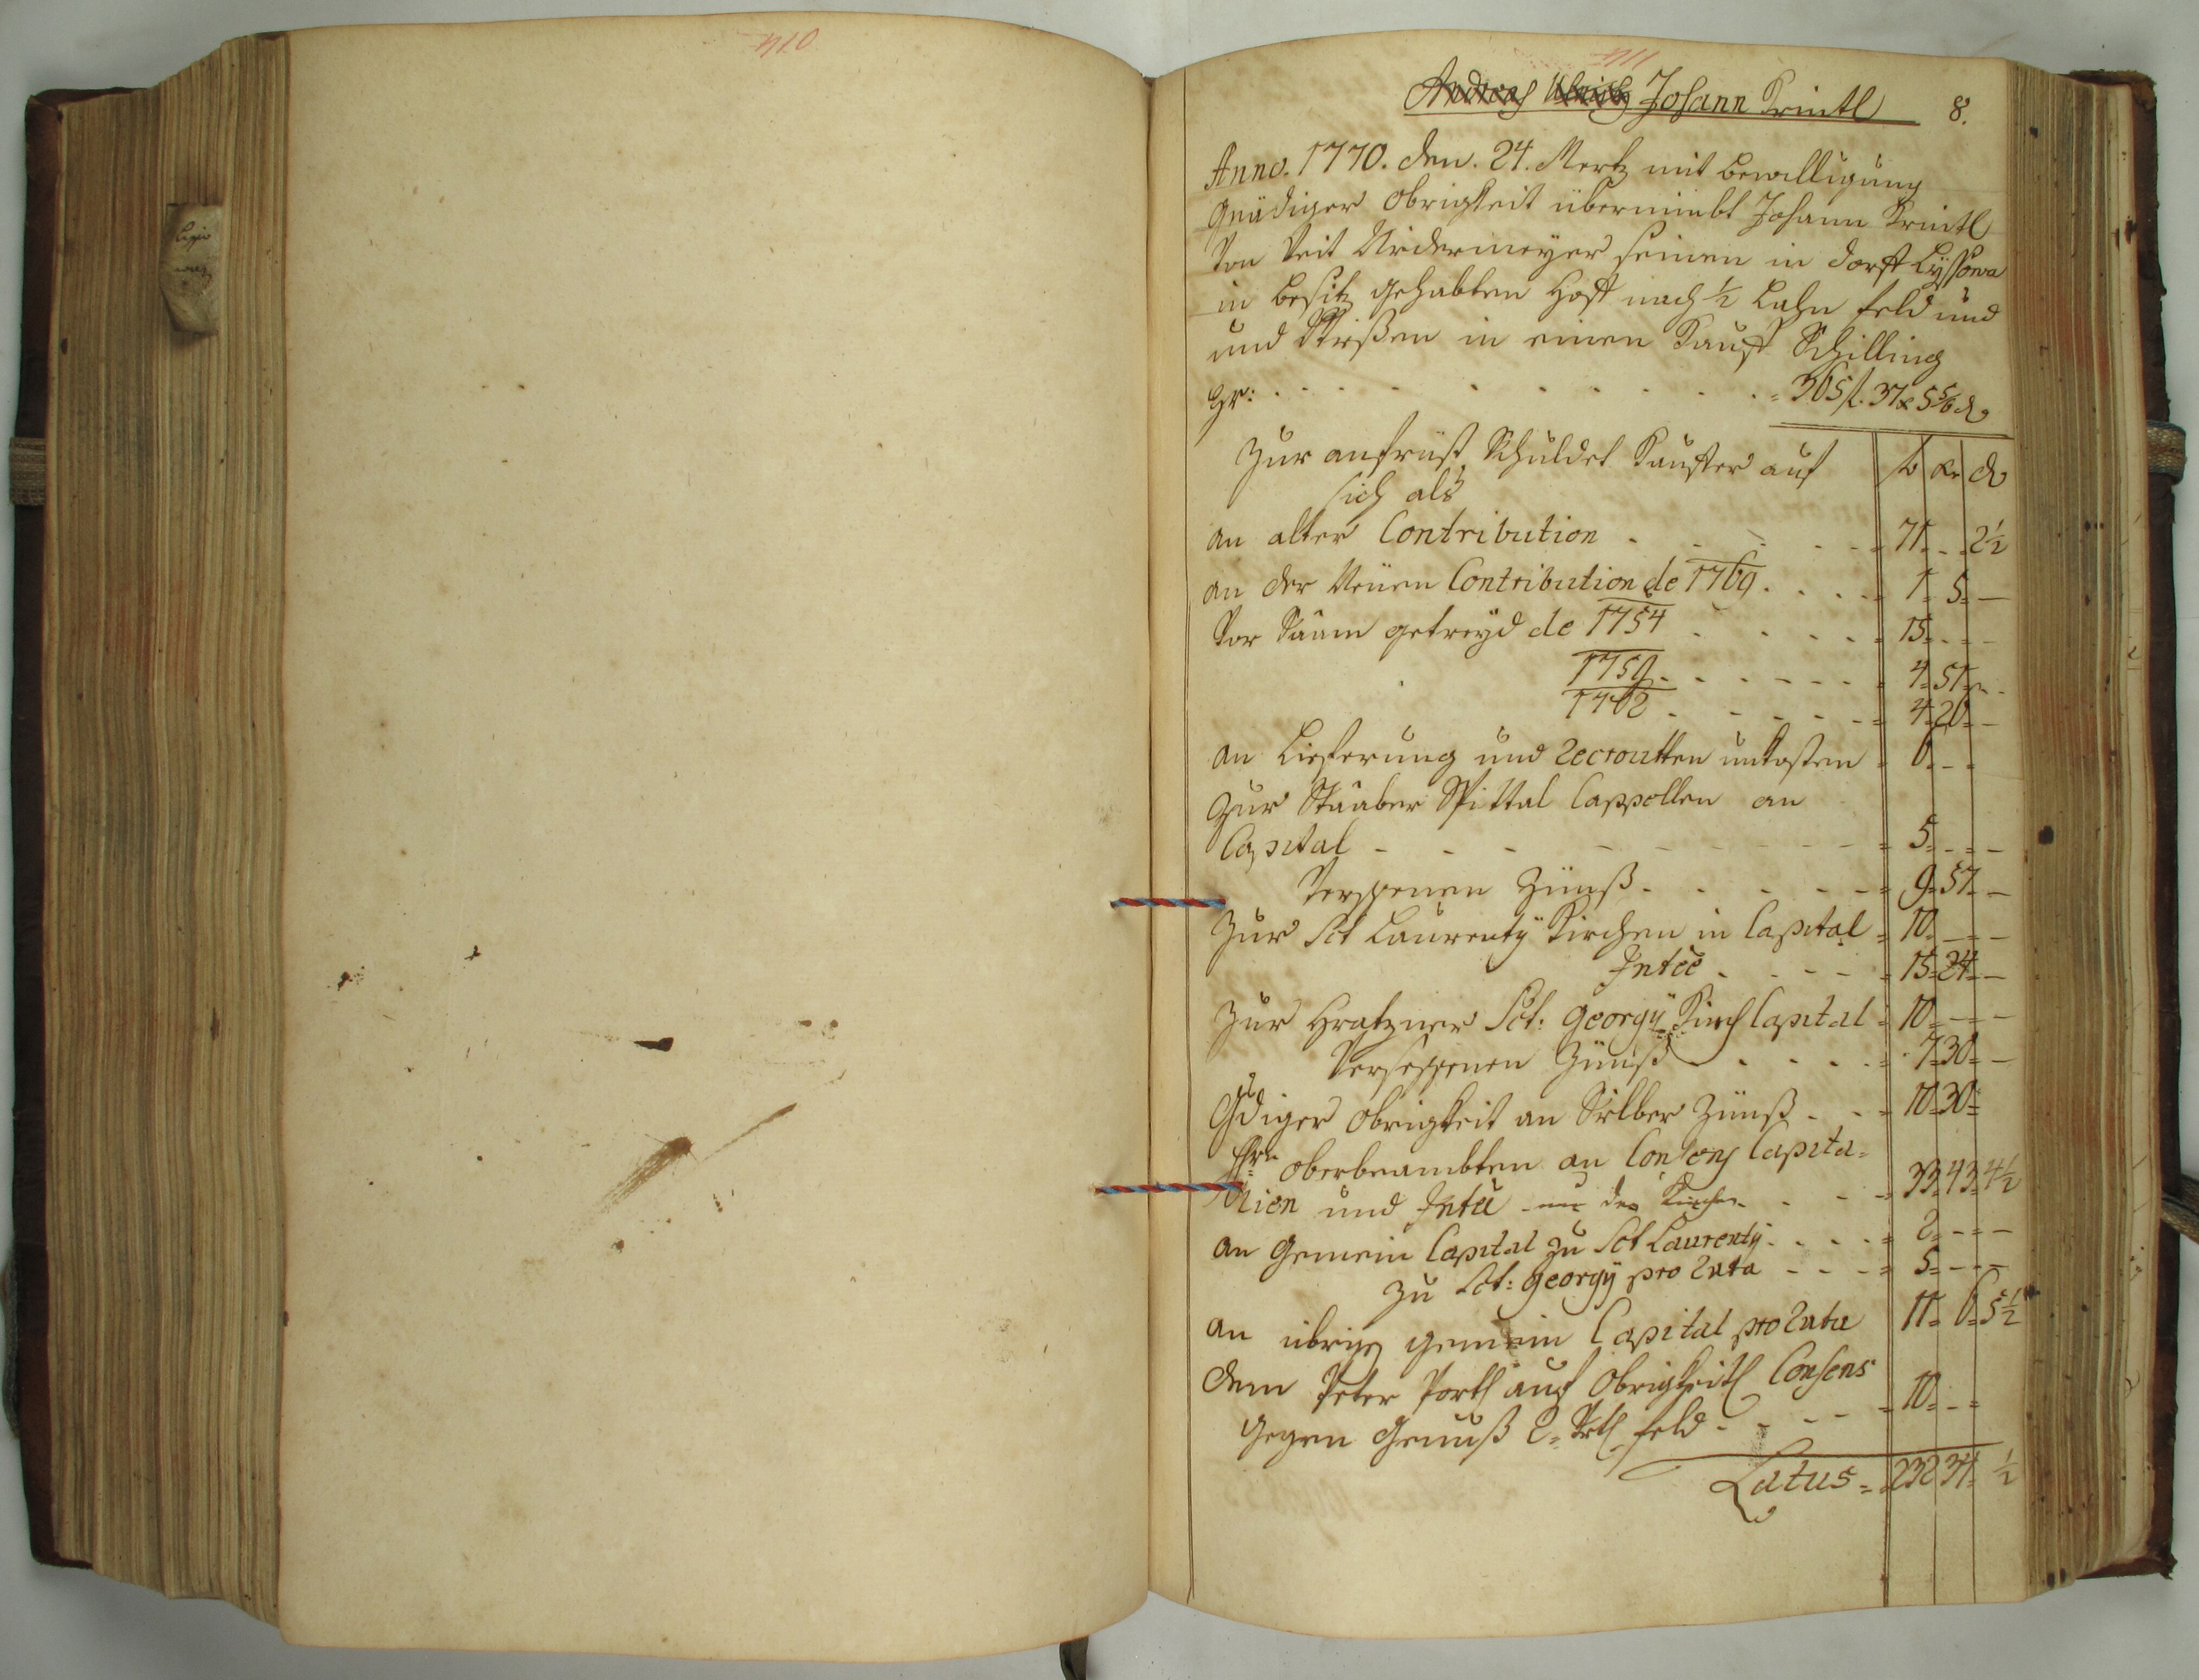 410
411
Andreas Ulrich Johann Trintl 8.
Anno. 1770. den. 24. Mertz mit bewilligung
gnädiger obrigkeit übernimbt Johann Trintl
Von Veit Nidermeÿer seinen in dorff Lÿssowa
in besitz gehabten Hoff nach ½ Lahn feld und
und Wießen in einen Kauff Schilling
pr: 365 f. 37 x 5 5/6 d
Zur anfrist Schuldet Kauffer auf
sich als
fl Kr d
an alter Contribution 71 - 2½
an der Neüen Contribution de 1769 1 5 -
Vor Saam getreÿd de 1754 15 - -
1759 4 51 -
1762 4 20 -
an Lieferung und Recroutten unkosten 6 - -
Zur Stäaber Spittal Cappollen an
Capital 5 - -
Versessenen Zünß 9 57 -
Zur Sct Laurentÿ Kirchen in Capital 10 - -
Inteē 15 24 -
Zur Hratzner Sct: Georgÿ Kirch Capital 10 - -
Versessenen Zünß 7 30 -
Gdiger Obrigkeit an Silber Zünß 10 30
Hrn oberbeambten an Consens Capita=
lien und Inteē 33 43 4½
an Gemein Capital zu Sct Laurentÿ 2 - -
zu Sct: Georgÿ pro Rata 5 - -
an übrig gemein Capital pro Rata 11 6 5½
dem Peter obrigkeitl Consens
gegen Genuß 2 Strl feld 10 - -
Latus 232 31 ½